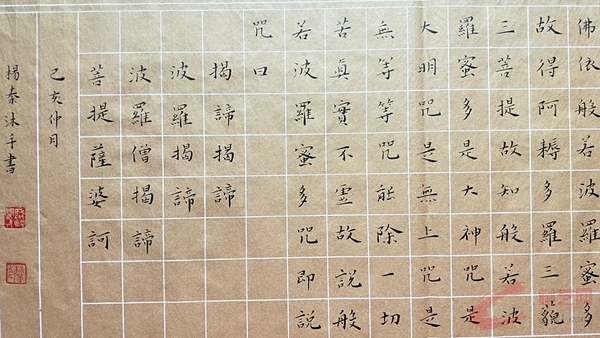 佛依般若波羅蜜多
故得阿耨多羅三藐
三菩提故知般若波
羅蜜多是大神咒是
大明咒是無上咒是
無等等咒能除一切
苦真實不虛故說般
若波羅蜜多咒即說
咒曰
揭諦揭諦
波羅揭諦
波羅僧揭諦
菩提薩婆訶
己亥仲月
楊秦沐手書